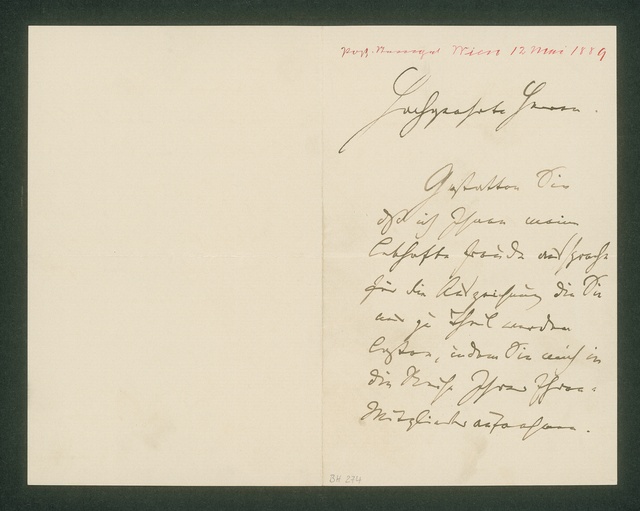 Wien 12 Mai 1889
Hochgeehrte Herren.
Gestatten Sie
daß ich Ihnen meine
lebhafte Freude ausspreche
für die Auszeichnung die Sie
mir zu Theil werden
lassen, indem Sie mich in
die Reihe Ihrer Ehren-
Mitglieder aufnehmen.
BH 274